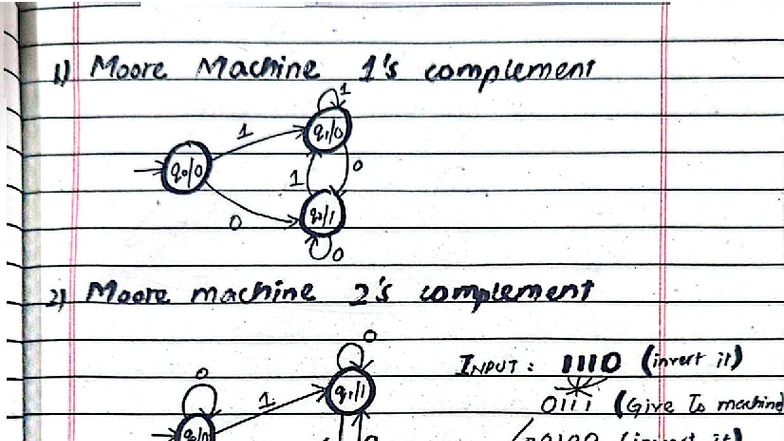 1) Moore Machine 1's complement
1
1
q1/0
q0/0
1
0
0
q2/1
0
2) Moore machine 2's complement
0
INPUT: 1110 (invert it)
0
1
q1/1
0111 (Give To machine
(invert it)